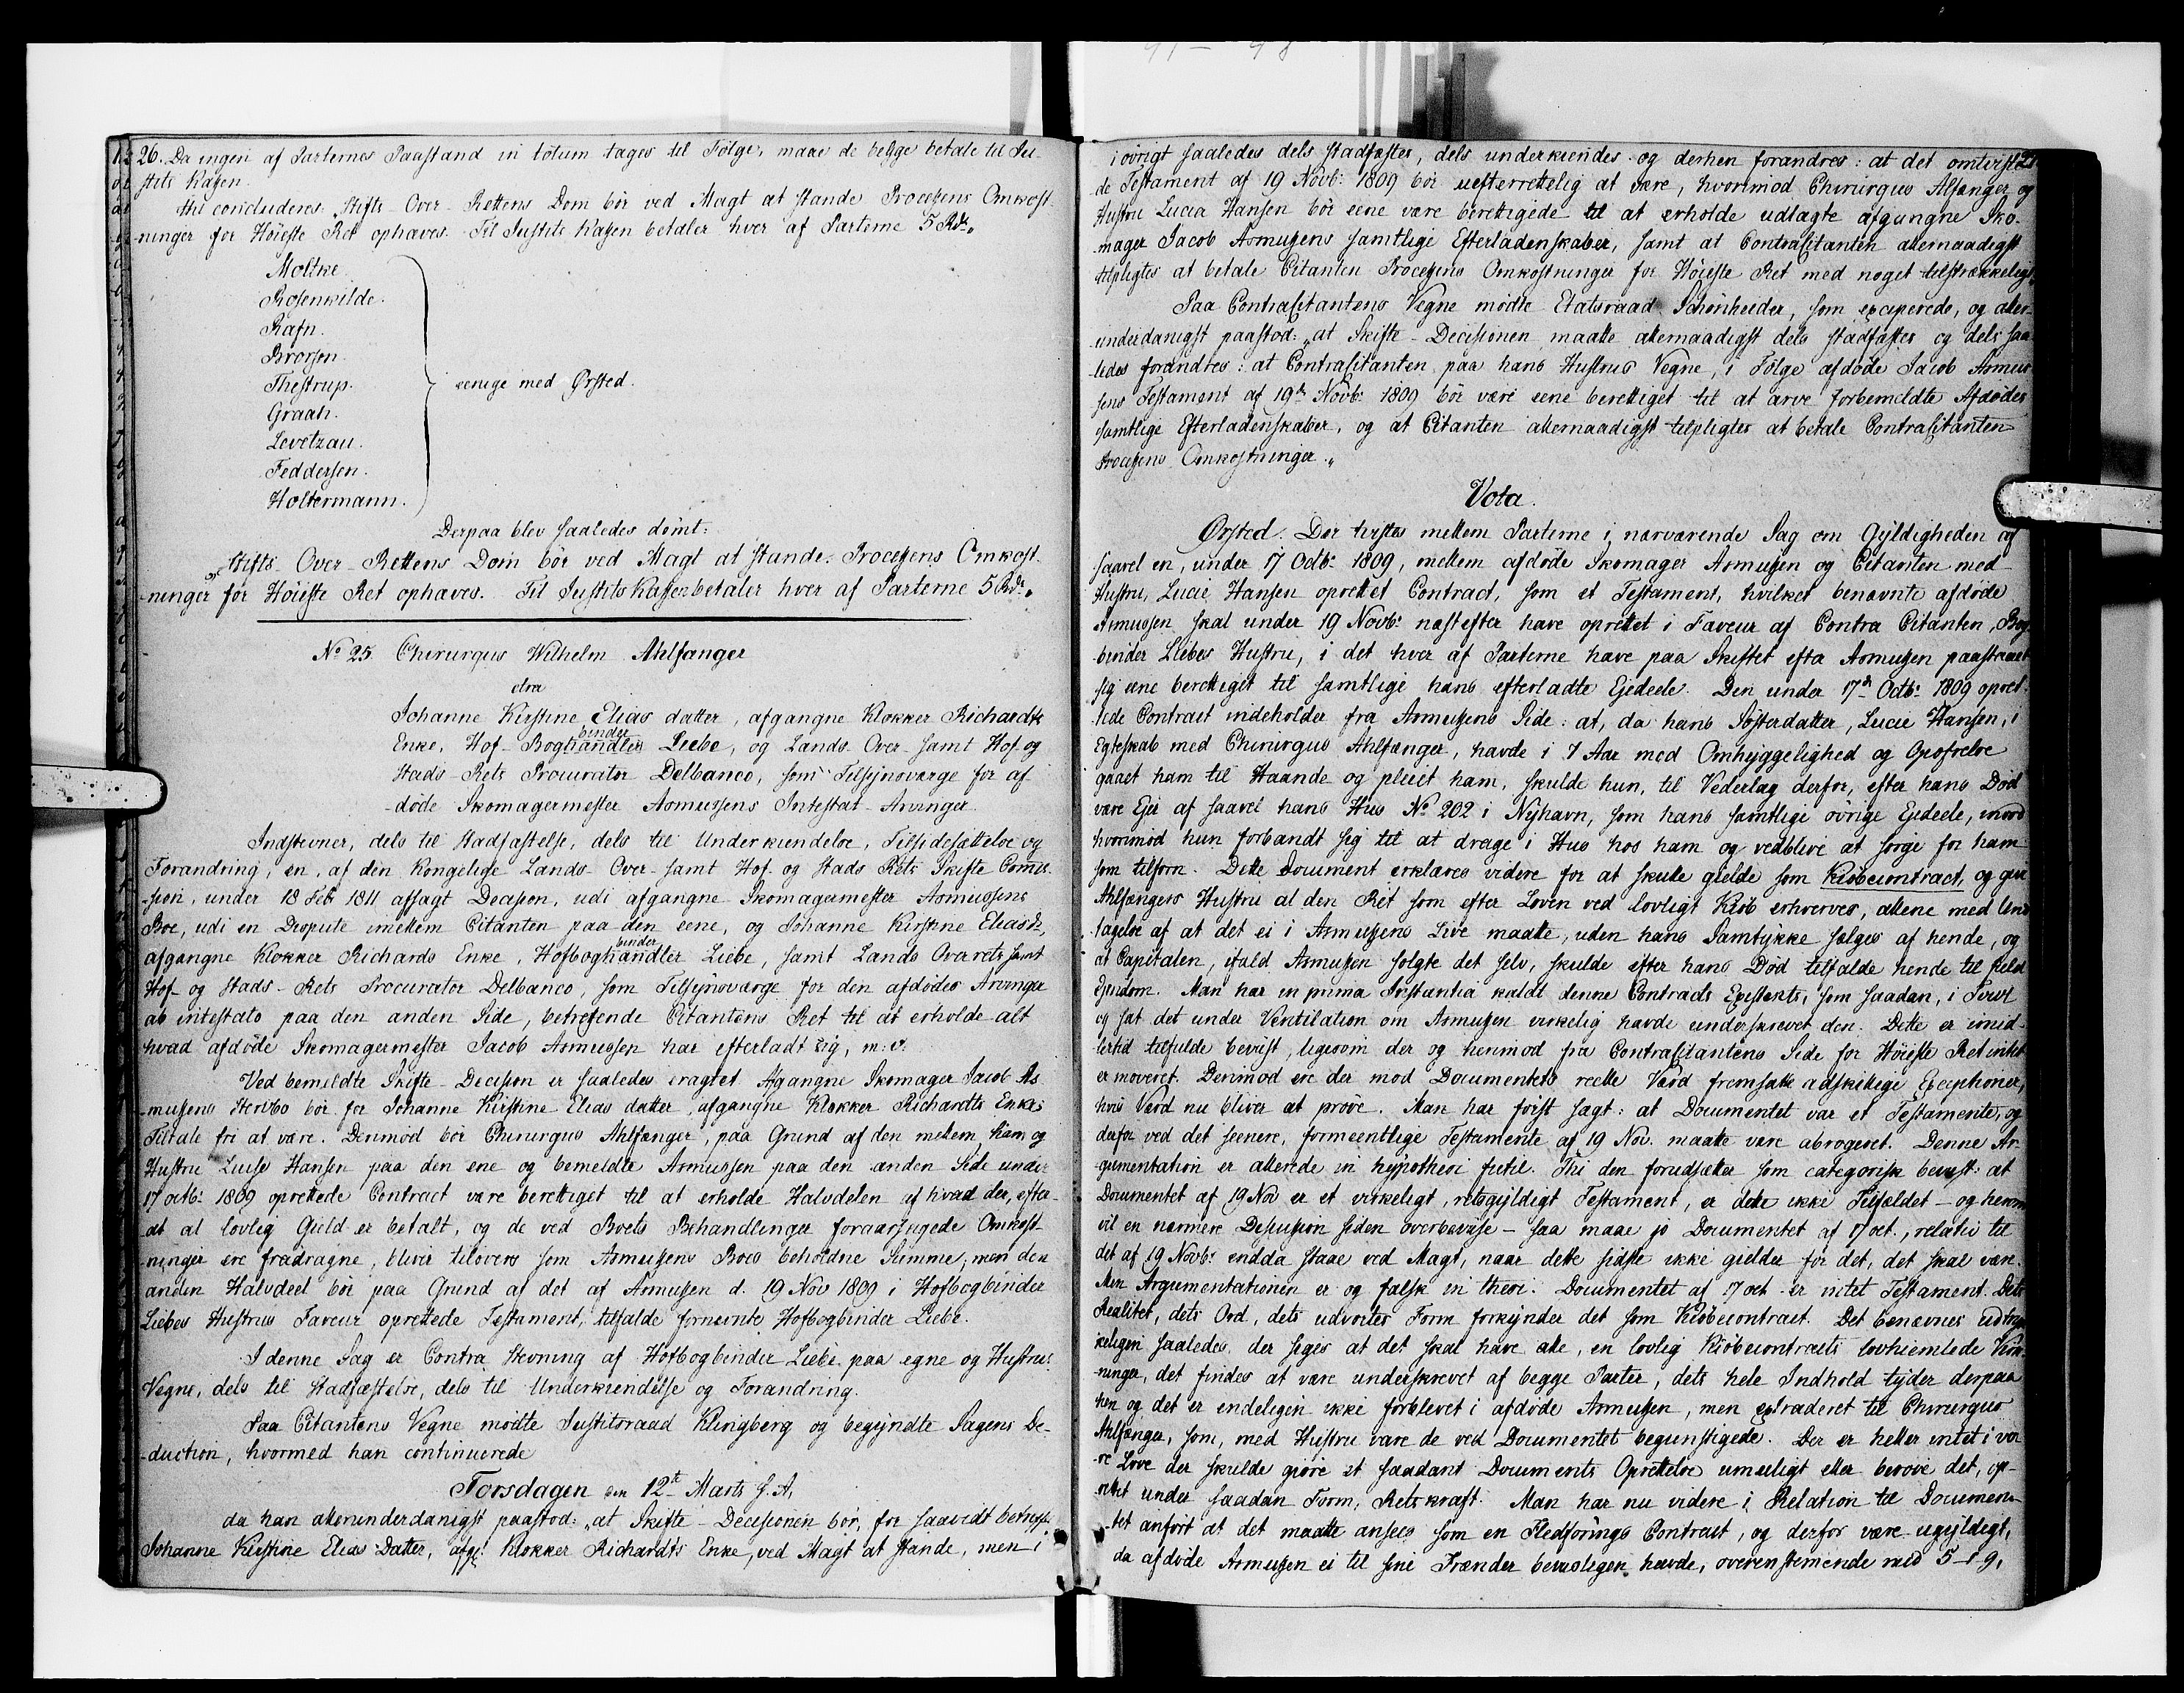 26. Da ingen af Parternes Paastand in totum tages til Følge, maae de begge betale til Ju-
stits Kassen.
thi concluderes: Stifts-Over-Rettens Dom bör ved Magt at stande. Processens Omkost-
ninger for Höieste Ret ophæves. Til Justits Kassen betaler hver af Parterne 5 Rd.
Moltke.
Rosenvilde.
Rafn.
Brorson.
Thestrup.
Graah.
Levetzau.
Feddersen.
Holtermann.
eenige med Ørsted.
Derpaa blev saaledes dømt:
Stifts-Over-Rettens Dom bör ved Magt at stande. Processens Omkost-
ninger for Höieste Ret ophæves. Til Justits Kassen betaler hver af Parterne 5 Rd.
No 25. Chirurgus Wilhelm Ahlfanger
ctra
Johanne Kirstine Elias datter, afgangne Klokker Richardts
Enke, Hof-Boghandler binder Liebe, og Lands-Over-samt Hof og
Stads-Rets Procurator Delbanco, som Tilsynsværge for af-
döde Skomagermester Asmussens Intestat-Arvinger
Indstevner, dels til Stadfæstelse, dels til Underkiendelse, Tilsidesættelse og
Forandring, en, af den Kongelige Lands-Over-samt Hof-og Stads Rets Skifte Comis-
sion, under 18 Feb 1811 afsagt Decision, udi afgangne Skomagermester Asmussens
Boe, udi en Dispute imellem Citanten paa den eene, og Johanne Kirstine Eliasdr,
afgangne Klokker Richards Enke, Hofboghandler binder Liebe, samt Lands Overrets samt
Hof-og Stads-Rets Procurator Delbanco, som Tilsynsværge for den afdødes Arvinger
ab intestato paa den anden Side, betreffende Citantens Ret til at erholde alt
hvad afdöde Skomagermester Jacob Asmussen har efterladt sig, m. v.
Ved bemeldte Skifte-Decision er saaledes eragtet: Afgangne Skomager Jacob As-
mussens Sterbbo bör for Johanne Kirstine Elias datter, afgangne Klokker Richardts Enkes
Tiltale fri at være. Derimod bör Chirurgus Ahlfanger, paa Grund af den mellem ham og
Hustru Lucie Hansen paa den ene og bemeldte Asmussen paa den anden Side under
17 octb: 1809 oprettede Contract være berettiget til at erholde Halvdelen af hvad der, efter-
at al lovlig Gield er betalt, og de ved Boets Behandlinger foraarsagede Omkost-
ninger ere fradragne, bliver tilovers som Asmussens Boes beholdne Summe; men den
anden Halvdeel bör paa Grund af det af Asmussen d. 19 Nov 1809 i Hofbogbinder
Liebes Hustrues Faveur oprettede Testament, tilfalde fornevnte Hofbogbinder Liebe.
I denne Sag er Contra Stevning af Hofbogbinder Liebe paa egne og Hustrus
Vegne, dels til Stadfæstelse, dels til Underkiendelse og Forandring.
Paa Citantens Vegne mödte Justitsraad Klingberg og begyndte Sagens De-
duction, hvormed han continuerede
Torsdagen den 12te Marts s. A,
da han allerunderdanigst paastod: "at Skifte-Decisionen bör, for saavidt betreffer
Johanne Kirstine Elias Datter, afg: Klokker Richardts Enke, ved Magt at stande, men i
iövrigt saaledes dels stadfæstes, dels underkiendes og derhen forandres: at det omtviste-
de Testament af 19 Novb: 1809 bör uefterrettelig at være, hvorimod Chirurgus Alfanger og
Hustru Lucia Hansen bör eene være berettigede til at erholde udlagte afgangne Sko-
mager Jacob Asmussens samtlige Efterladenskaber, samt at Contracitanten allernaadigst
tilpligtes at betale Citanten Processens Omkostninger for Höieste Ret med noget tilstrækkeligt."
Paa Contracitantens Vegne mödte Etatsraad Schönheider, som exciperede, og aller-
underdanigst paastod: "at Skifte-Decisionen maatte allernaadigst dels stadfæstes og dels saa-
ledes forandres: at Contracitanten paa hans Hustrus Vegne, i Fölge afdöde Jacob Asmus-
sens Testament af 19de Novb: 1809 bör være eene berettiget til at arve forbemeldte Afdödes
samtlige Efterladenskaber, og at Citanten allernaadigst tilpligtes at betale Contracitanten
Processens Omkostninger."
Vota.
Ørsted. Der tvistes mellem Parterne i nærværende Sag om Gyldigheden af
saavel en, under 17 Octb: 1809, mellem afdöde Skomager Asmussen og Citanten med
Hustru, Lucie Hansen oprettet Contract, som et Testament, hvilket benævnte afdöde
Asmussen skal under 19 Novb: næstefter have oprettet i Faveur af Contra Citanten, Bog-
binder Liebes Hustru, i det hver af Parterne have paa Skiftet efter Asmussen paastaaet
sig eene berettiget til samtlige hans efterladte Ejedeele. Den under 17de Octb: 1809 opret-
tede Contract indeholder fra Asmussens Side: at, da hans Sösterdatter, Lucie Hansen, i
Egteskab med Chirurgus Ahlfanger, havde i 7 Aar med Omhyggelighed og Opofrelse
gaaet ham til Haande og pleiet ham, skulde hun, til Vederlag derfor, efter hans Död
være Ejer af saavel hans Hus No 202 i Nyhavn, som hans samtlige övrige Ejedeele,
hvorimod hun forbandt sig til at drage i Hus hos ham og vedblive at sörge for ham
som tilforn. Dette Document erklæres videre for at skulle gielde som Kiöbecontract, og give
Ahlfangers Hustru al den Ret som efter Loven ved lovligt Kiöb erhverves, allene med Und-
tagelse af at det ei i Asmussens Live maatte, uden hans Samtykke sælges af hende, og
at Capitalen, ifald Asmussen solgte det selv, skulde efter hans Död tilfalde hende til fuld
Ejendom. Man har in prima Instantia kaldt denne Contracts Existents, som saadan, i Tvivl
og sat det under Ventilation om Asmussen virkelig havde underskrevet den. Dette er imid-
lertid tilfulde beviist, ligesom der og herimod fra Contracitantens Side for Höieste Ret intet
er moveret. Derimod ere der mod Documentets reelle Værd fremsatte adskillige Exceptioner,
hvis Værd nu bliver at pröve. Man har först sagt: at Documentet var et Testamente, og
derfor ved det seenere, formeentlige Testamente af 19 Nov. maatte være abrogeret. Denne Ar-
gumentation er allerede in hypothesi futil. Thi den forudsætter som categorisk bevist: at
Documentet af 19 Nov er et virkeligt, retsgyldigt Testament, er dette ikke Tilfældet - og herom
vil en nærmere Discussion siden overbevise - saa maae jo Documentet af 17 oct., relativ til
det af 19 Novb: endda staae ved Magt, naar dette sidste ikke gielder for det, det skal være.
Men Argumentationen er og falsk in thesi. Documentet af 17 oct. er intet Testament. Dets
Realitet, dets Ord, dets udvortes Form forkynder det som Kiöbecontract. Det benævnes udtryk-
keligen saaledes, der siges at det skal have alle, en lovlig Kiöbecontracts lovhiemlede Virk-
ninger, det findes at være underskrevet af begge Parter, dets hele Indhold tyder derpaa
hen og det er endeligen ikke forblevet i afdöde Asmussen, men extraderet til Chirurgus
Ahlfanger, som, med Hustru vare de ved Documentet begunstigede. Der er heller intet i vo-
re Love der skulde giöre et saadant Documents Oprettelse umuligt eller beröve det, op-
rettet under saadan Form, Retskraft. Man har nu videre i Relation til Documen-
tet anfört at det maatte ansees som en Fledförings Contract, og derfor være ugyldigt,
da afdöde Asmussen ei til sine Frænder bevisligen havde, overenstemmende med 5-1-9,